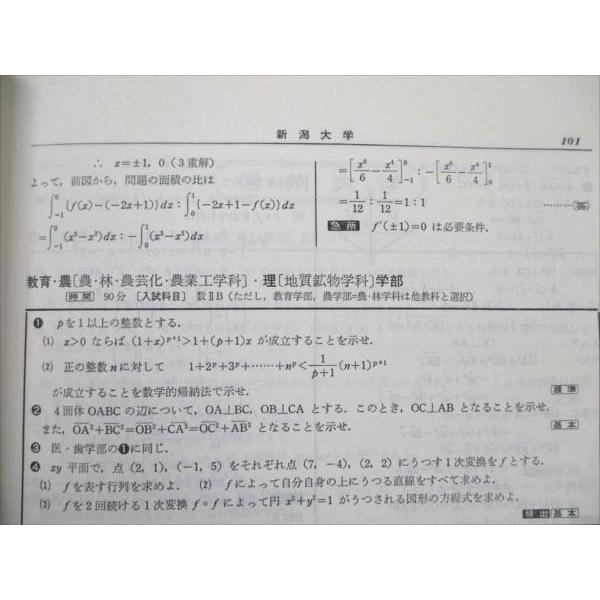 新潟大学
101
∴ x=±1, 0 (3重解)
よって，前図から，問題の面積の比は
∫_{-1}^{0}{f(x)-(-2x+1)}dx : ∫_{0}^{1}{-2x+1-f(x)}dx
=∫_{-1}^{0}(x⁵-x³)dx : -∫_{0}^{1}(x⁵-x³)dx
=[x⁶/6 - x⁴/4]_{-1}^{0} : -[x⁶/6 - x⁴/4]_{0}^{1}
=1/12 : 1/12=1:1 ………(答)
急所 f′(±1)=0 は必要条件.
教育・農[農・林・農芸化・農業工学科]・理[地質鉱物学科]学部
[時間] 90分 [入試科目] 数ⅡB (ただし，教育学部，農学部=農・林学科は他教科と選択)
❶ pを1以上の整数とする.
(1) x>0 ならば (1+x)^{p+1}>1+(p+1)x が成立することを示せ.
(2) 正の整数nに対して 1+2^p+3^p+……+n^p<1/(p+1)(n+1)^{p+1}
が成立することを数学的帰納法で示せ.
標準
❷ 4面体OABCの辺について，OA⊥BC, OB⊥CA とする．このとき，OC⊥AB となることを示せ.
また，OA²+BC²=OB²+CA²=OC²+AB² となることを示せ.
基本
❸ 医・歯学部の❶に同じ.
❹ xy平面で，点(2, 1), (-1, 5)をそれぞれ点(7, -4), (2, 2)にうつす1次変換をfとする.
(1) fを表す行列を求めよ. (2) fによって自分自身の上にうつる直線をすべて求めよ.
(3) fを2回続ける1次変換 f∘f によって円 x²+y²=1 がうつされる図形の方程式を求めよ.
頻出 基本